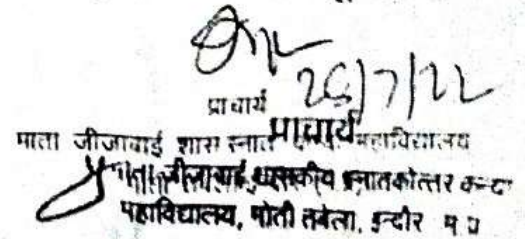 26/7/22
प्राचार्य
प्राचार्य
माता जीजाबाई शास स्नात महाविद्यालय
माता जीजाबाई शासकीय स्नातकोत्तर कन्या
महाविद्यालय, मोती तबेला, इन्दौर म प्र